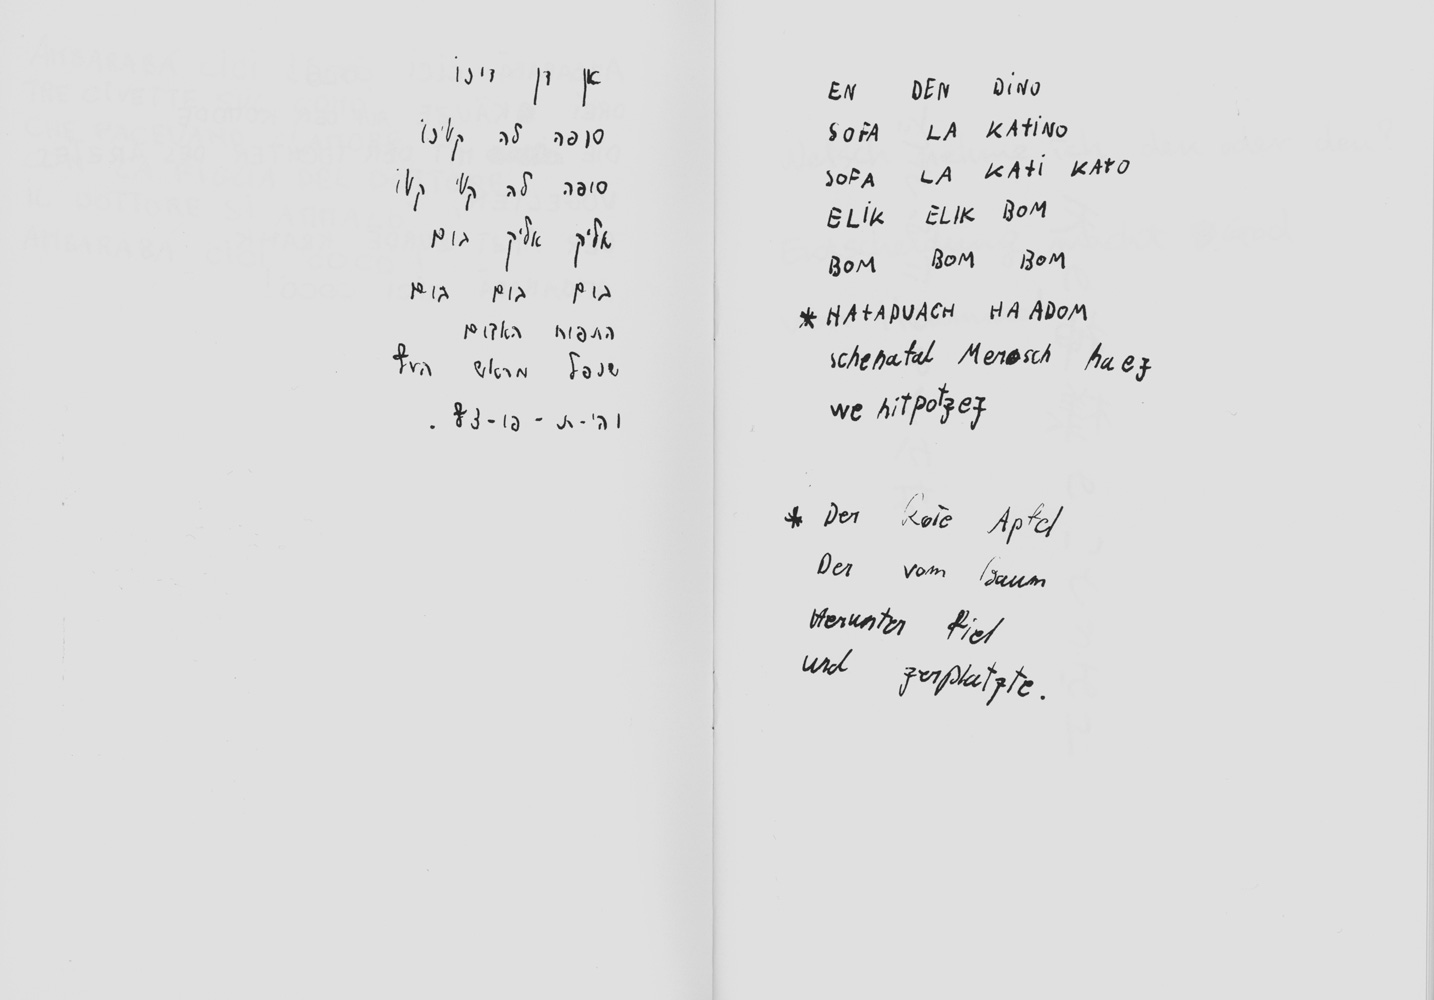 אן דן דינו
סופה לה קטינו
סופה לה קטי קטו
אליק אליק בום
בום בום בום
התפוח האדום
שנפל מראש העץ
והי-ת-פו-צץ.
EN DEN DiNO
SOFA LA KAtiNO
SOFA LA KAti KAtO
ELiK ELIK BOM
BOM BOM BOM
* HAtAPUACH HA ADOM
schenafal Merosch ha ez
we hitpotzez
* Der Rote Apfel
Der vom Baum
Herunter fiel
und zerplatzte.